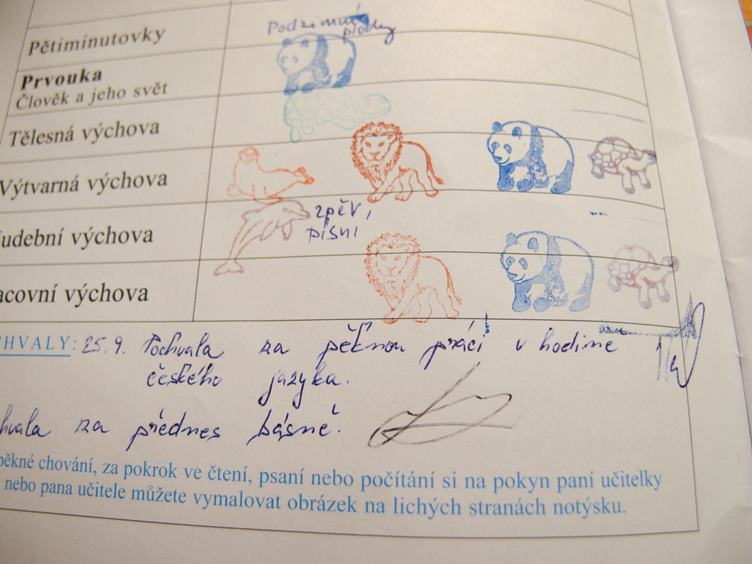 Podzimní
plody
Pětiminutovky
Prvouka
Člověk a jeho svět
Tělesná výchova
Výtvarná výchova
zpěv,
písní
udební výchova
acovní výchova
HVALY: 25. 9. Pochvala za pěknou práci v hodině
českého jazyka.
hvala za přednes básně.
pěkné chování, za pokrok ve čtení, psaní nebo počítání si na pokyn paní učitelky
nebo pana učitele můžete vymalovat obrázek na lichých stranách notýsku.